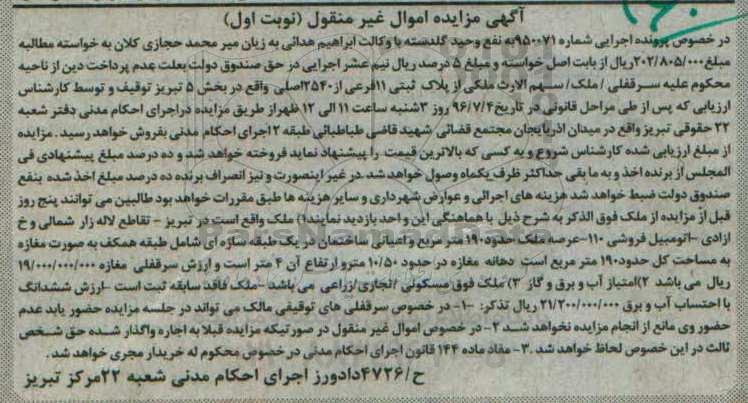 آگهی مزایده اموال غیر منقول (نوبت اول)
در خصوص پرونده اجرایی شماره ۹۵۰۰۷۱به نفع وحید گلدسته با وکالت ابراهیم هدائی به زیان میر محمد حجازی کلان به خواسته مطالبه
مبلغ۲۰۲/۸۰۵/۰۰۰ریال از بابت اصل خواسته و مبلغ ۵ درصد ریال نیم عشر اجرایی در حق صندوق دولت بعلت عدم پرداخت دین از ناحیه
محکوم علیه سـرقفلی / ملک/ سـهم الارث ملکی از پلاک ثبتی ۱۱فرعی از۲۵۴۰اصلی واقع در بخش ۵ تبریز توقیف و توسط کارشناس
ارزیابی که پس از طی مراحل قانونی در تاریخ۹۶/۷/۴ روز ۳شنبه ساعت ۱۱ الی ۱۲ ظهراز طریق مزایده دراجرای احکام مدنی دفتر شعبه
۲۲ حقوقی تبریز واقع در میدان اذربایجان مجتمع قضائی شهید قاضی طباطبائی طبقه ۲ اجرای احکام مدنی بفروش خواهد رسید . مزایده
از مبلغ ارزیابی شده کارشناس شروع و به کسی که بالاترین قیمت را پیشنهاد نماید فروخته خواهد شد و ده درصد مبلغ پیشنهادی فی
المجلس از برنده اخذ و به ما بقی حداکثر ظرف یکماه وصول خواهد شد .در غیر اینصورت و نیز انصراف برنده ده درصد مبلغ اخذ شده بنفع
صندوق دولت ضبط خواهد شد هزینه های اجرائی و عوارض شهرداری و سایر هزینه ها طبق مقررات خواهد بود طالبین می توانند پنج روز
قبل از مزایده از ملک فوق الذکر به شرح ذیل با هماهنگی این واحد بازدید نمایند۱) ملک واقع است در تبریز - تقاطع لاله زار شمالی و خ
ازادی -اتومبیل فروشی ۱۱۰-عرصه ملک حدود۱۹۰ متر مربع و اعیانی ساختمان در یک طبقه سازه ای شامل طبقه همکف به صورت مغازه
به مساحت کل حدود۱۹۰ متر مربع است دهانه مغازه در حدود ۱۰/۵۰ مترو ارتفاع آن ۴ متر است و ارزش سرقفلی مغازه ۱۹/۰۰۰/۰۰۰/۰۰۰
ریال می باشد ۲)امتیاز آب و برق و گاز ۳) ملک فوق مسکونی /تجاری/زراعی می باشد -ملک فاقد سابقه ثبت است -ارزش ششدانگ
با احتساب آب و برق ۲۱/۲۰۰/۰۰۰/۰۰۰ ریال تذکر: -۱- در خصوص سرقفلی های توقیفی مالک می تواند در جلسه مزایده حضور یابد عدم
حضور وی مانع از انجام مزایده نخواهد شـد ۲- در خصوص اموال غیر منقول در صورتیکه مزایده قبلا به اجاره واگذار شـده حق شـخص
ثالث در این خصوص لحاظ خواهد شد .۳- مفاد ماده ۱۴۴ قانون اجرای احکام مدنی در خصوص محکوم له خریدار مجری خواهد شد .
ح/۴۷۲۶دادورز اجرای احکام مدنی شعبه ۲۲مرکز تبریز